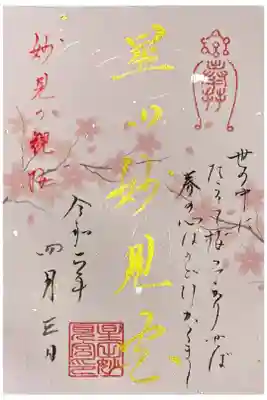 世の中に
たえて桜のなかりせば
春の心はのどけからまし
星田妙見宮
妙見の観桜
令和 年
四月三日